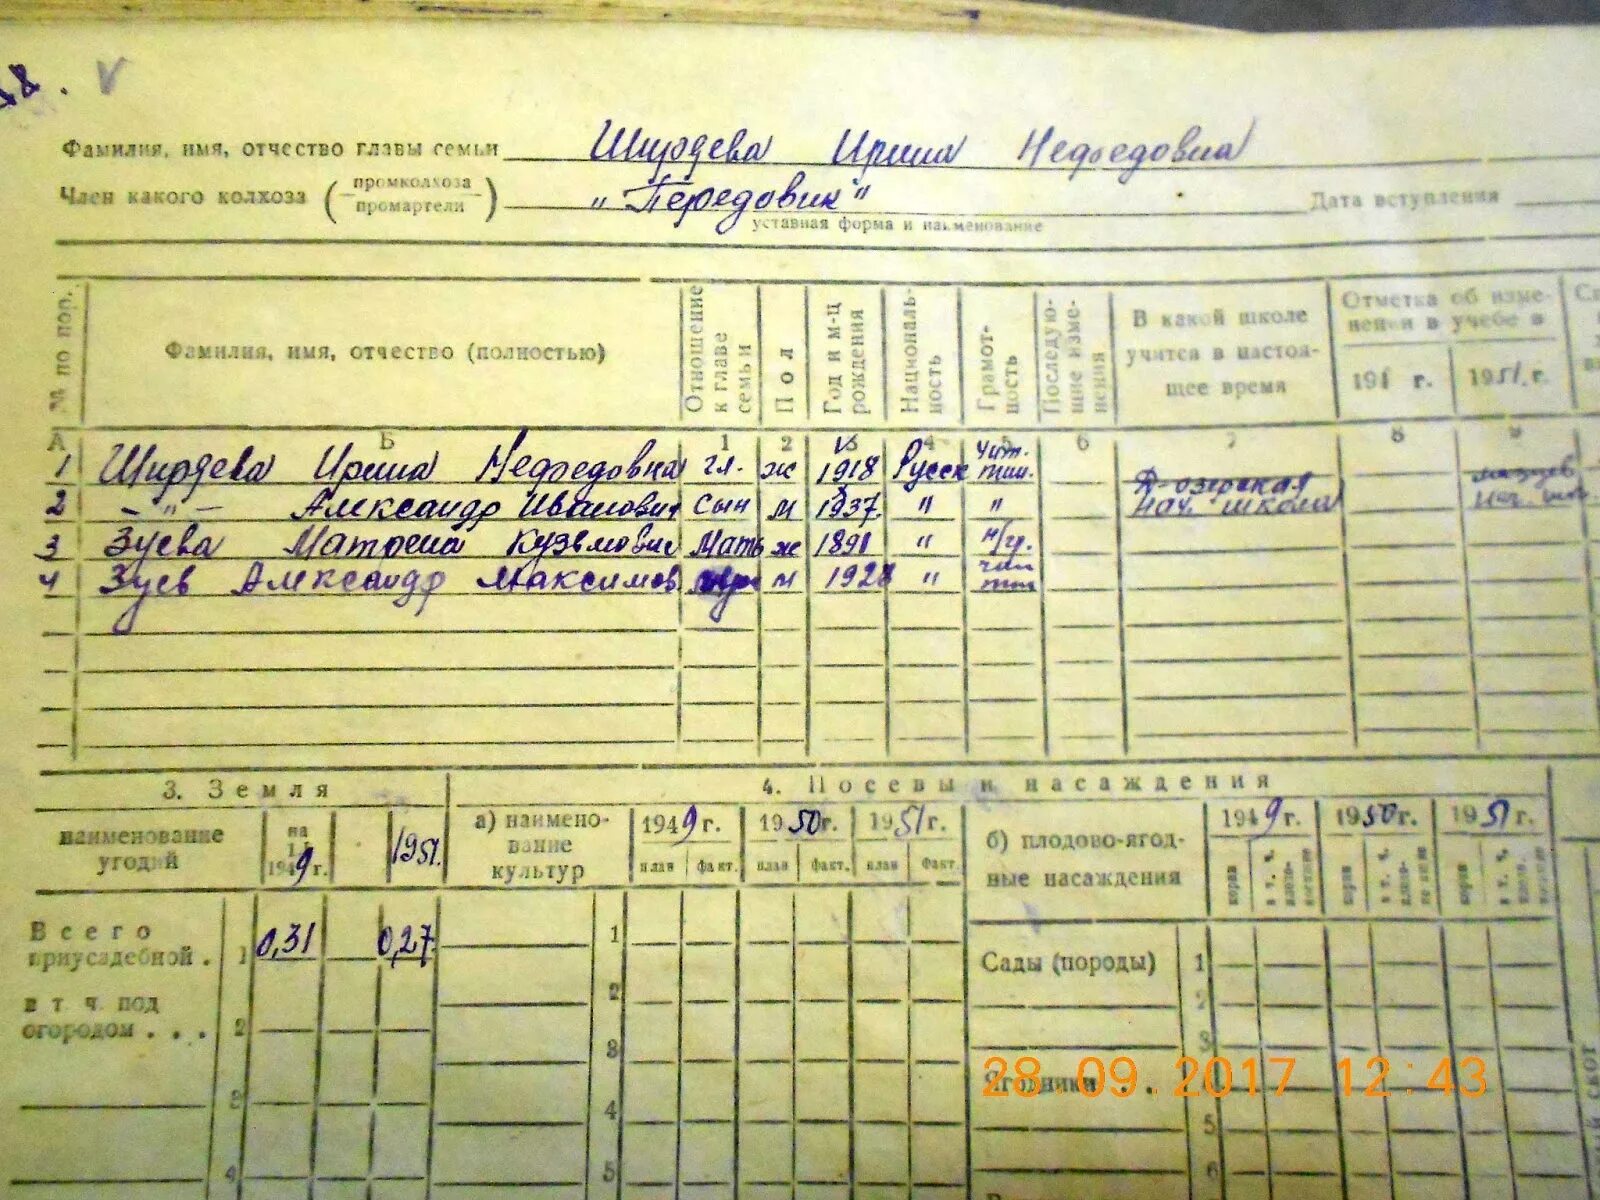 Фамилия, имя, отчество главы семьи Ширяева Ирина Нефедовна
Член какого колхоза (промколхоза промартели) "Передовик" Дата вступления
уставная форма и наименование
№ по пор. Фамилия, имя, отчество (полностью) Отношение к главе семьи Пол Год и м-ц рождения Националь-ность Грамот-ность Последую-щие изме-нения В какой школе учится в настоя-щее время Отметка об изме-нении в учебе в 194 г. 1951 г.
А Б 1 2 3 4 5 6 7 8 9
1 Ширяева Ирина Нефедовна гл. ж 1918 Русск
2 —"— Александр Иванович сын м 1937 " " нач. школа
3 Зуева Матрена Кузьмовна Мать ж 1891 " м/гр.
4 Зуев Александр Максимов м 1928 "
3. Земля 4. Посевы и насаждения
наименование угодий на 1 I 1949 г. 1951.
а) наимено-вание культур 1949 г. 1950 г. 1951 г.
план факт. план факт. план факт.
б) плодово-ягод-ные насаждения 1949 г. 1950 г. 1951 г.
Всего приусадебной . 1 0,31 0,27
в т. ч. под огородом . . . 2
3
4
1
2
3
4
5
Сады (породы) 1
2
3
Ягодники
5
6
скот
28.09.2017 12:43